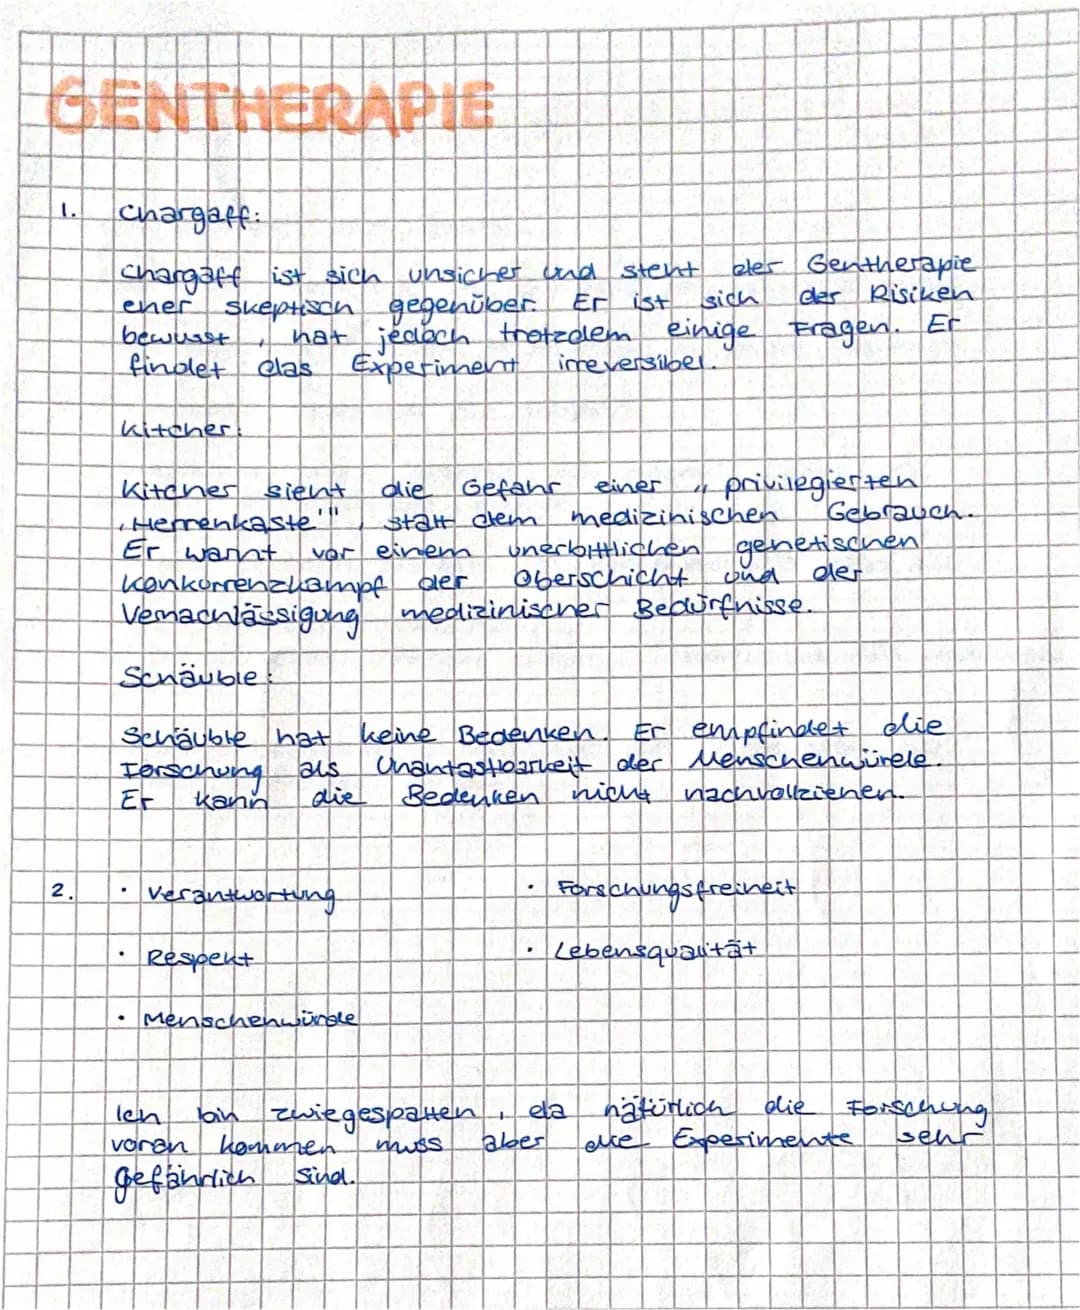 GENTHERAPIE
1. Chargaff:
Chargaff ist sich unsicher und steht der Gentherapie
eher skeptisch gegenüber. Er ist sich der Risiken
bewusst, hat jedoch trotzdem einige Fragen. Er
findet das Experiment irreversibel.
Kitcher:
Kitcher sieht die Gefahr einer „privilegierten
'Herrenkaste'", statt dem medizinischen Gebrauch.
Er warnt vor einem unerbittlichen genetischen
Konkurrenzkampf der Oberschicht und der
Vernachlässigung medizinischer Bedürfnisse.
Schäuble:
Schäuble hat keine Bedenken. Er empfindet die
Forschung als Unantastbarkeit der Menschenwürde.
Er kann die Bedenken nicht nachvollziehen.
2. • Verantwortung • Forschungsfreiheit
• Respekt • Lebensqualität
• Menschenwürde
Ich bin zwiegespalten, da natürlich die Forschung
voran kommen muss aber die Experimente sehr
gefährlich sind.